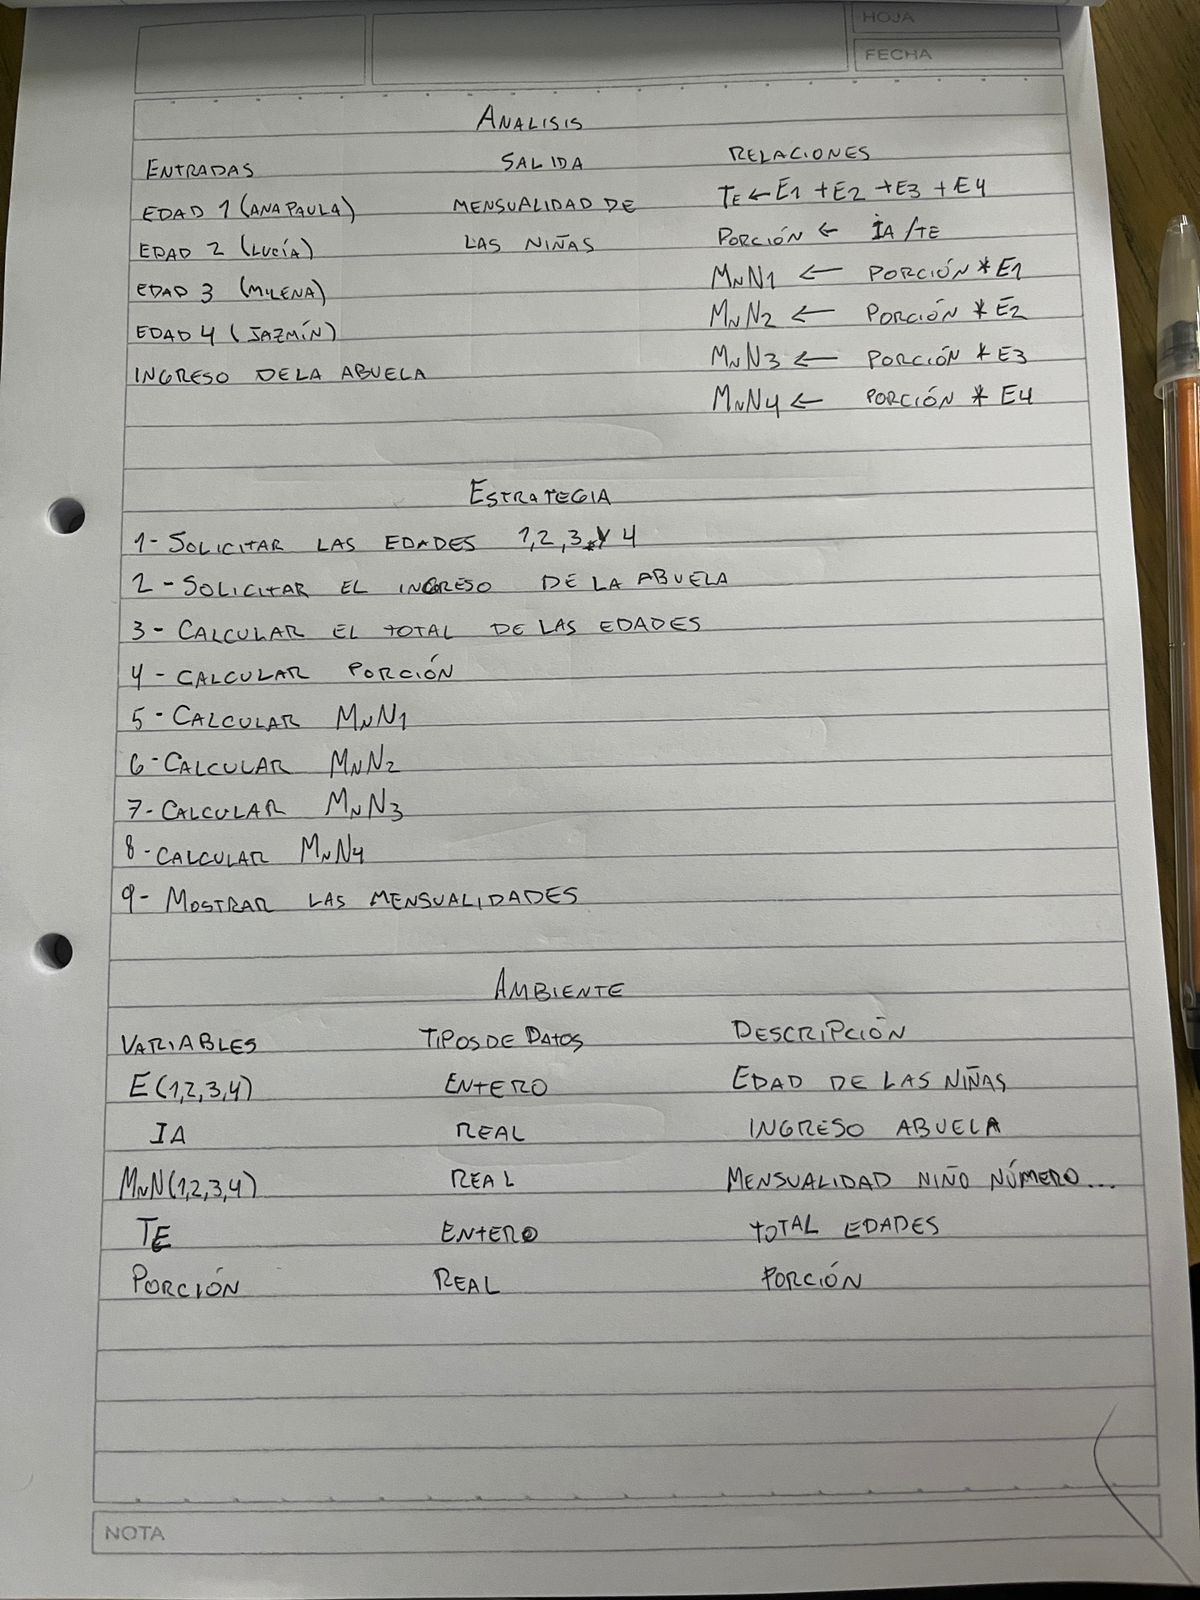 HOJA
FECHA
ANALISIS
ENTRADAS SALIDA RELACIONES
EDAD 1 (ANA PAULA) MENSUALIDAD DE TE ← E1 + E2 + E3 + E4
EDAD 2 (LUCÍA) LAS NIÑAS PORCIÓN ← IA/TE
EDAD 3 (MILENA) MNN1 ← PORCIÓN * E1
EDAD 4 (JAZMÍN) MNN2 ← PORCIÓN * E2
INGRESO DE LA ABUELA MNN3 ← PORCIÓN * E3
MNN4 ← PORCIÓN * E4
ESTRATEGIA
1- SOLICITAR LAS EDADES 1,2,3 Y 4
2- SOLICITAR EL INGRESO DE LA ABUELA
3- CALCULAR EL TOTAL DE LAS EDADES
4- CALCULAR PORCIÓN
5- CALCULAR MNN1
6- CALCULAR MNN2
7- CALCULAR MNN3
8- CALCULAR MNN4
9- MOSTRAR LAS MENSUALIDADES
AMBIENTE
VARIABLES TIPOS DE DATOS DESCRIPCIÓN
E(1,2,3,4) ENTERO EDAD DE LAS NIÑAS
IA REAL INGRESO ABUELA
MNN(1,2,3,4) REAL MENSUALIDAD NIÑO NÚMERO...
TE ENTERO TOTAL EDADES
PORCIÓN REAL PORCIÓN
NOTA